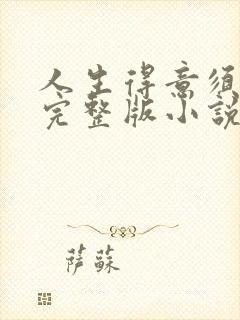 人生得意须
完整版小說
萨蘇